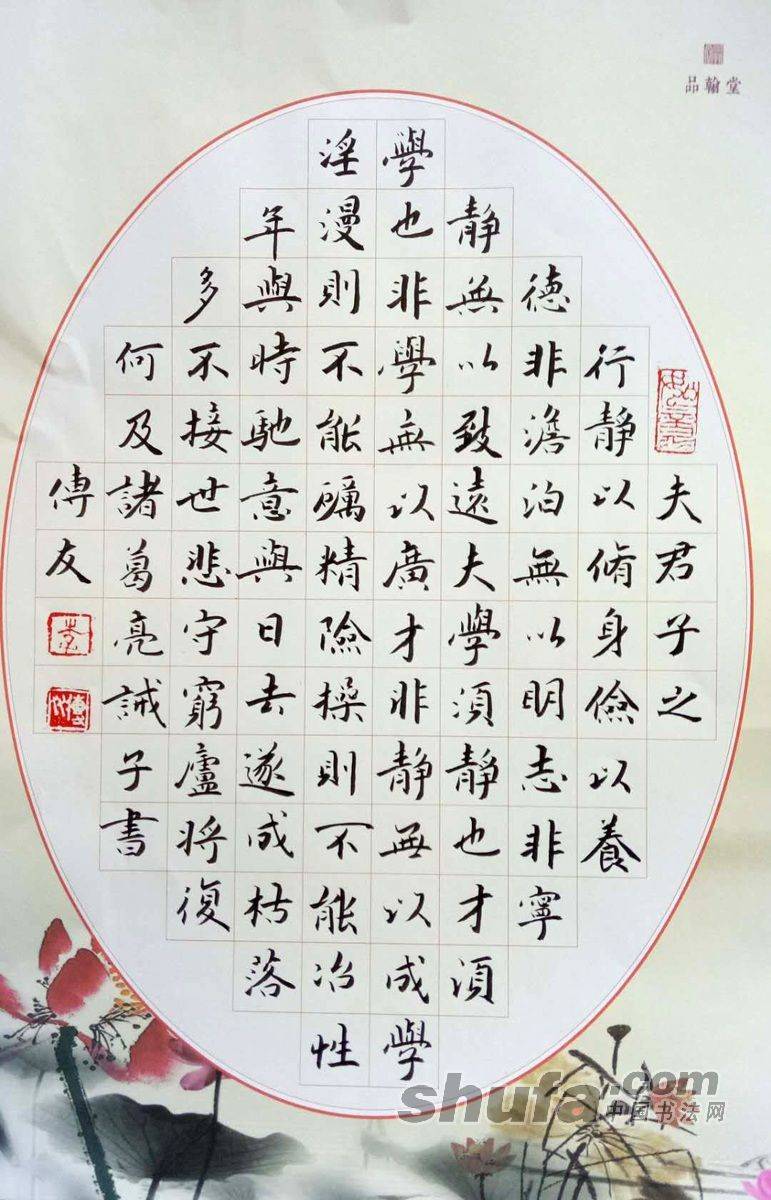 品翰堂
夫君子之
行靜以脩身儉以養
德非澹泊無以明志非寧
靜無以致遠夫學須靜也才須
學也非學無以廣才非靜無以成學
淫漫則不能礪精險操則不能冶性
年與時馳意與日去遂成枯落
多不接世悲守窮廬將復
何及諸葛亮誡子書
傳友
shufa.com
中国书法网